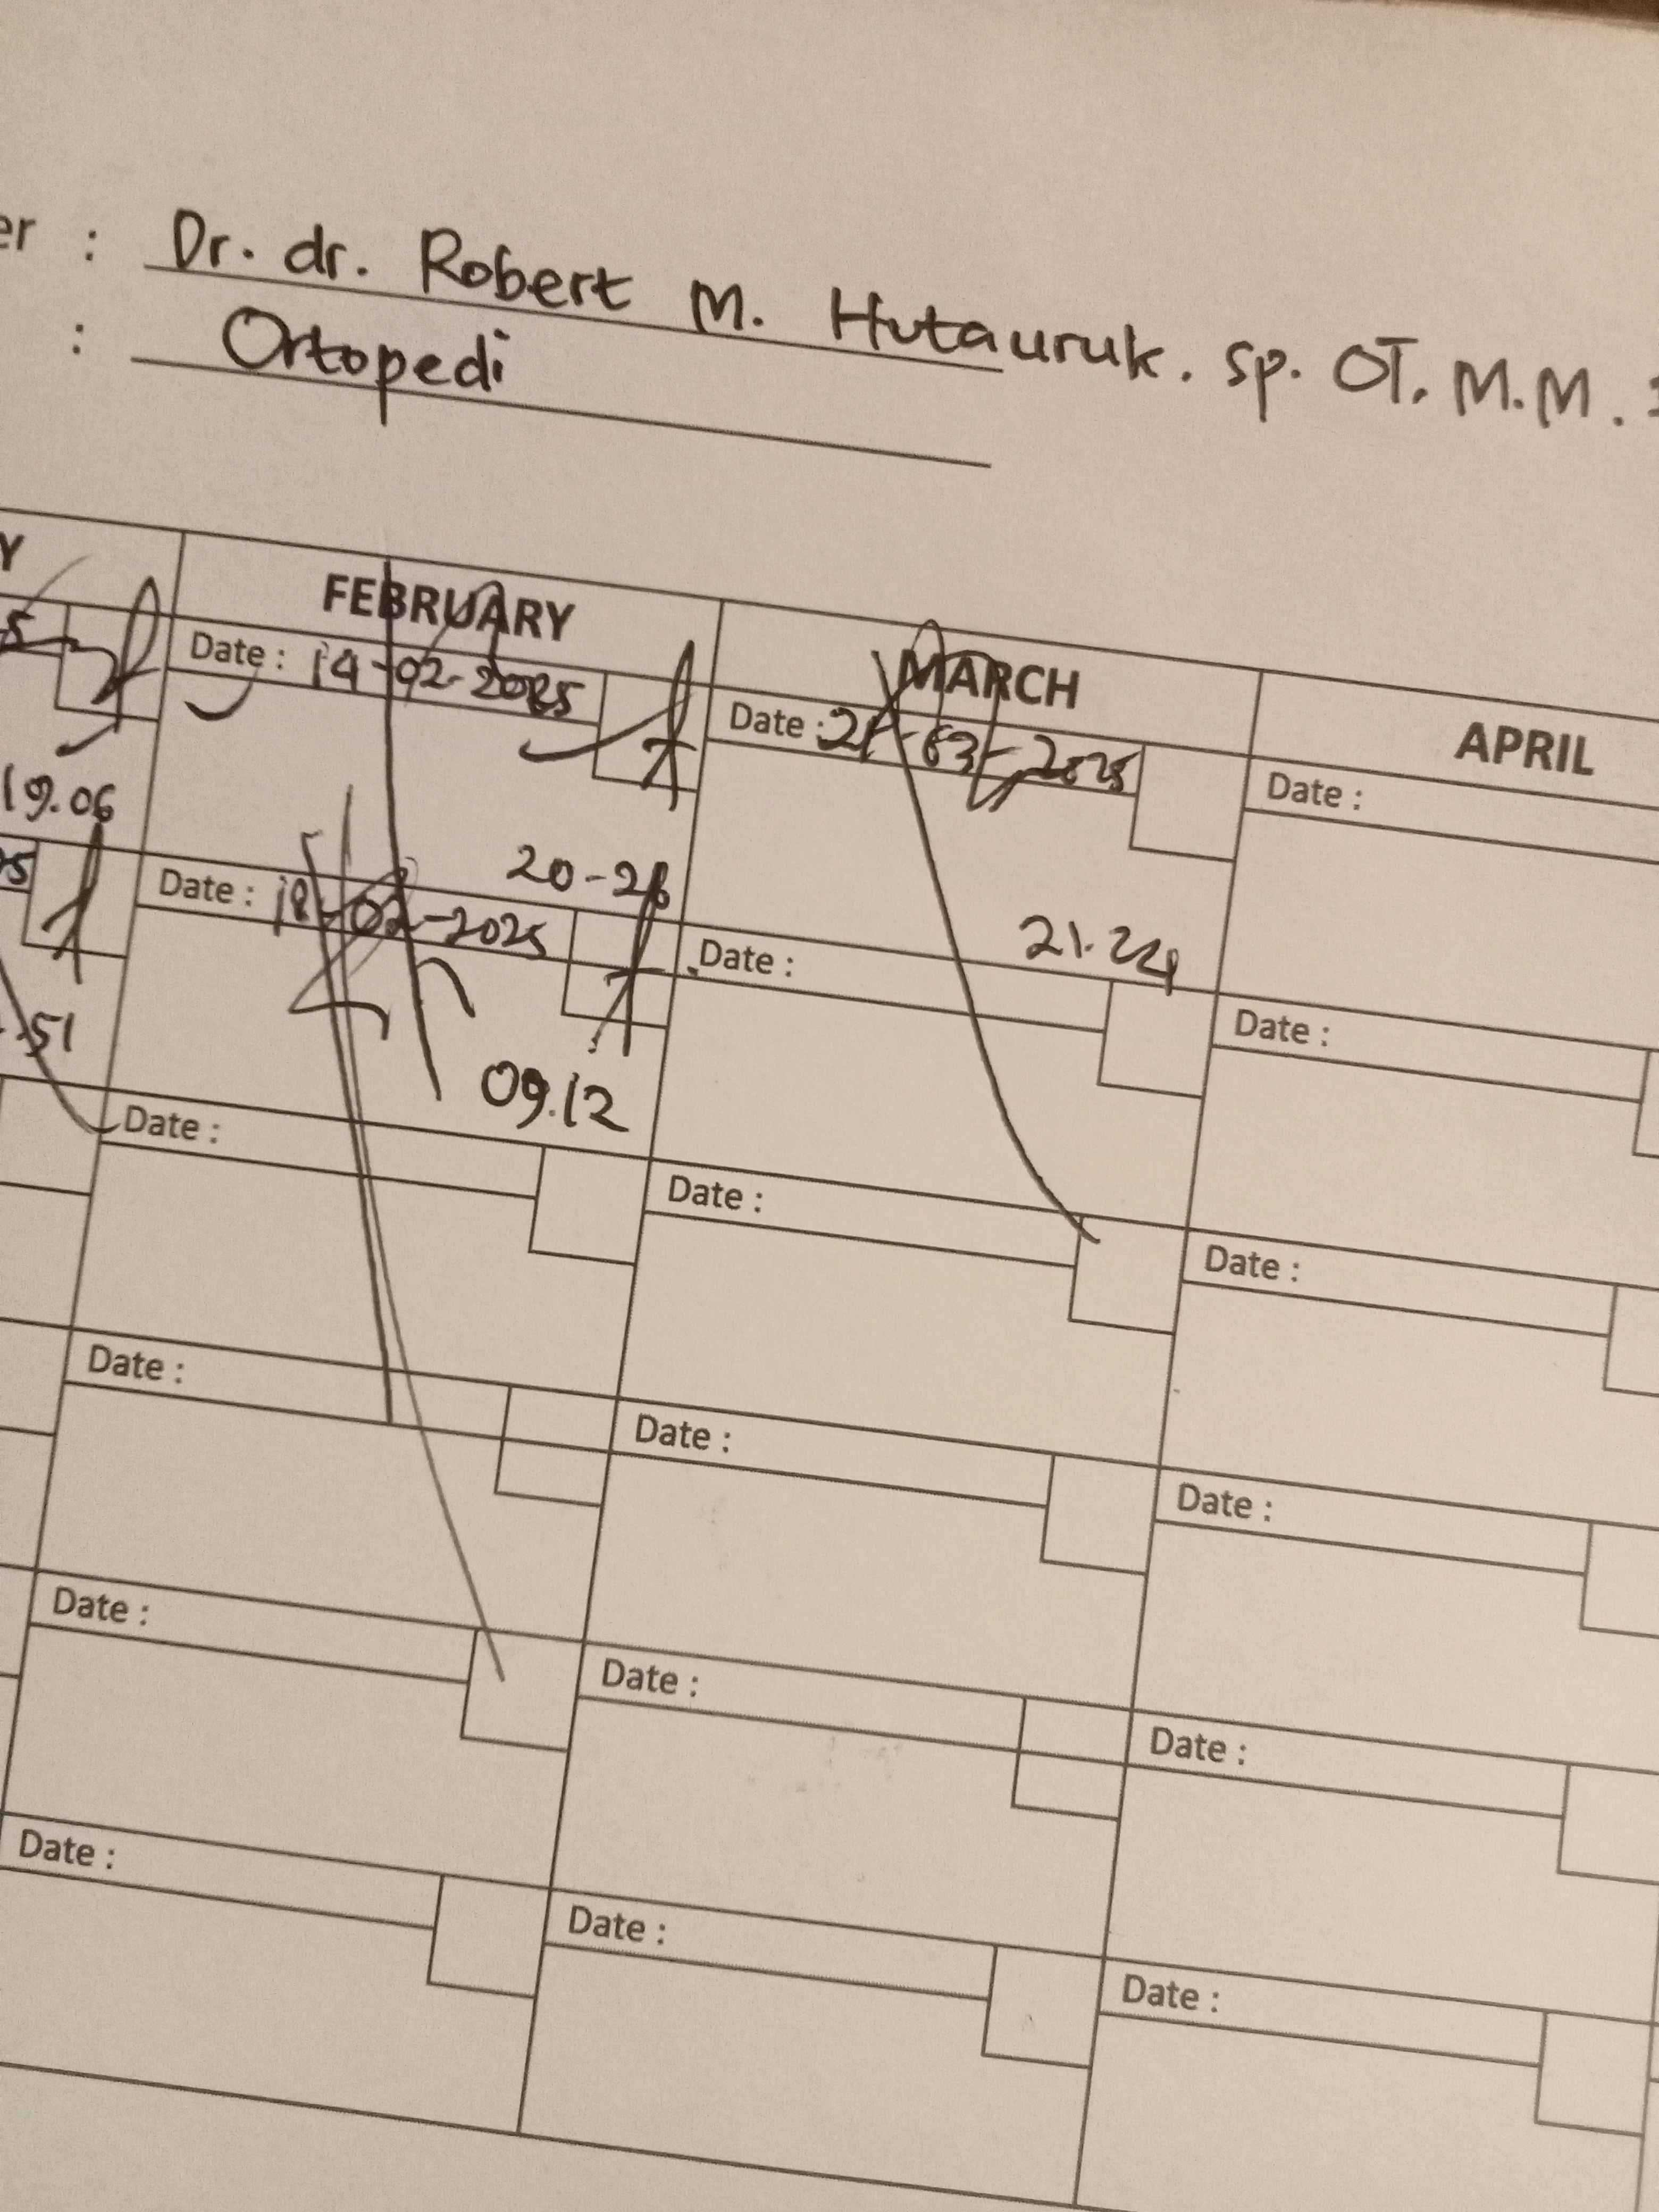 er : Dr. dr. Robert M. Hutauruk. Sp. OT. M.M.
: Ortopedi
Y FEBRUARY MARCH APRIL
5 Date : 14-02-2025 Date : 21-03-2025 Date :
19.06 20-26 21.24
25 Date : 18-02-2025 Date : Date :
.51 09.12
Date : Date : Date :
Date : Date : Date :
Date : Date : Date :
Date : Date : Date :